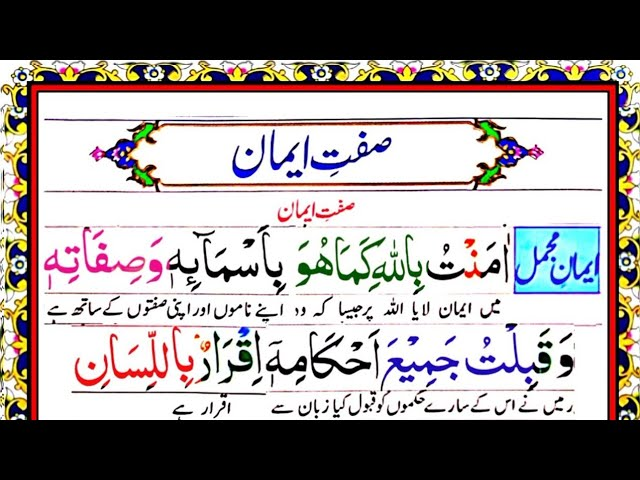 صفتِ ایمان
صفتِ ایمان
ایمانِ مجمل
اٰمَنْتُ بِاللّٰهِ كَمَا هُوَ بِاَسْمَآئِهٖ وَصِفَاتِهٖ
میں ایمان لایا اللہ پر جیسا کہ وہ اپنے ناموں اور اپنی صفتوں کے ساتھ ہے
وَقَبِلْتُ جَمِيْعَ اَحْكَامِهٖٓ اِقْرَارٌۢ بِاللِّسَانِ
ر میں نے اس کے سارے حکموں کو قبول کیا زبان سے اقرار ہے